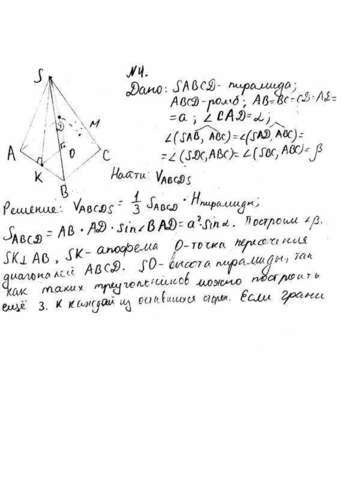 №4.
Дано: SABCD - пирамида;
ABCD - ромб; AB=BC=CD=AD=
=a; ∠BAD=α;
∠(SAB, ABC)=∠(SAD, ABC)=
=∠(SDC, ABC)=∠(SBC, ABC)=β
Найти: V_ABCDS
S
D
M
A
O
C
K
B
Решение: V_ABCDS = 1/3 S_ABCD · Hпирамиды;
S_ABCD = AB · AD · sin∠BAD = a² sinα. Построим ∠β.
SK⊥AB, SK - апофема O - точка пересечения
диагоналей ABCD. SO - высота пирамиды, так
как таких треугольников можно построить
ещё 3. К каждой из оставшихся сторон. Если грани